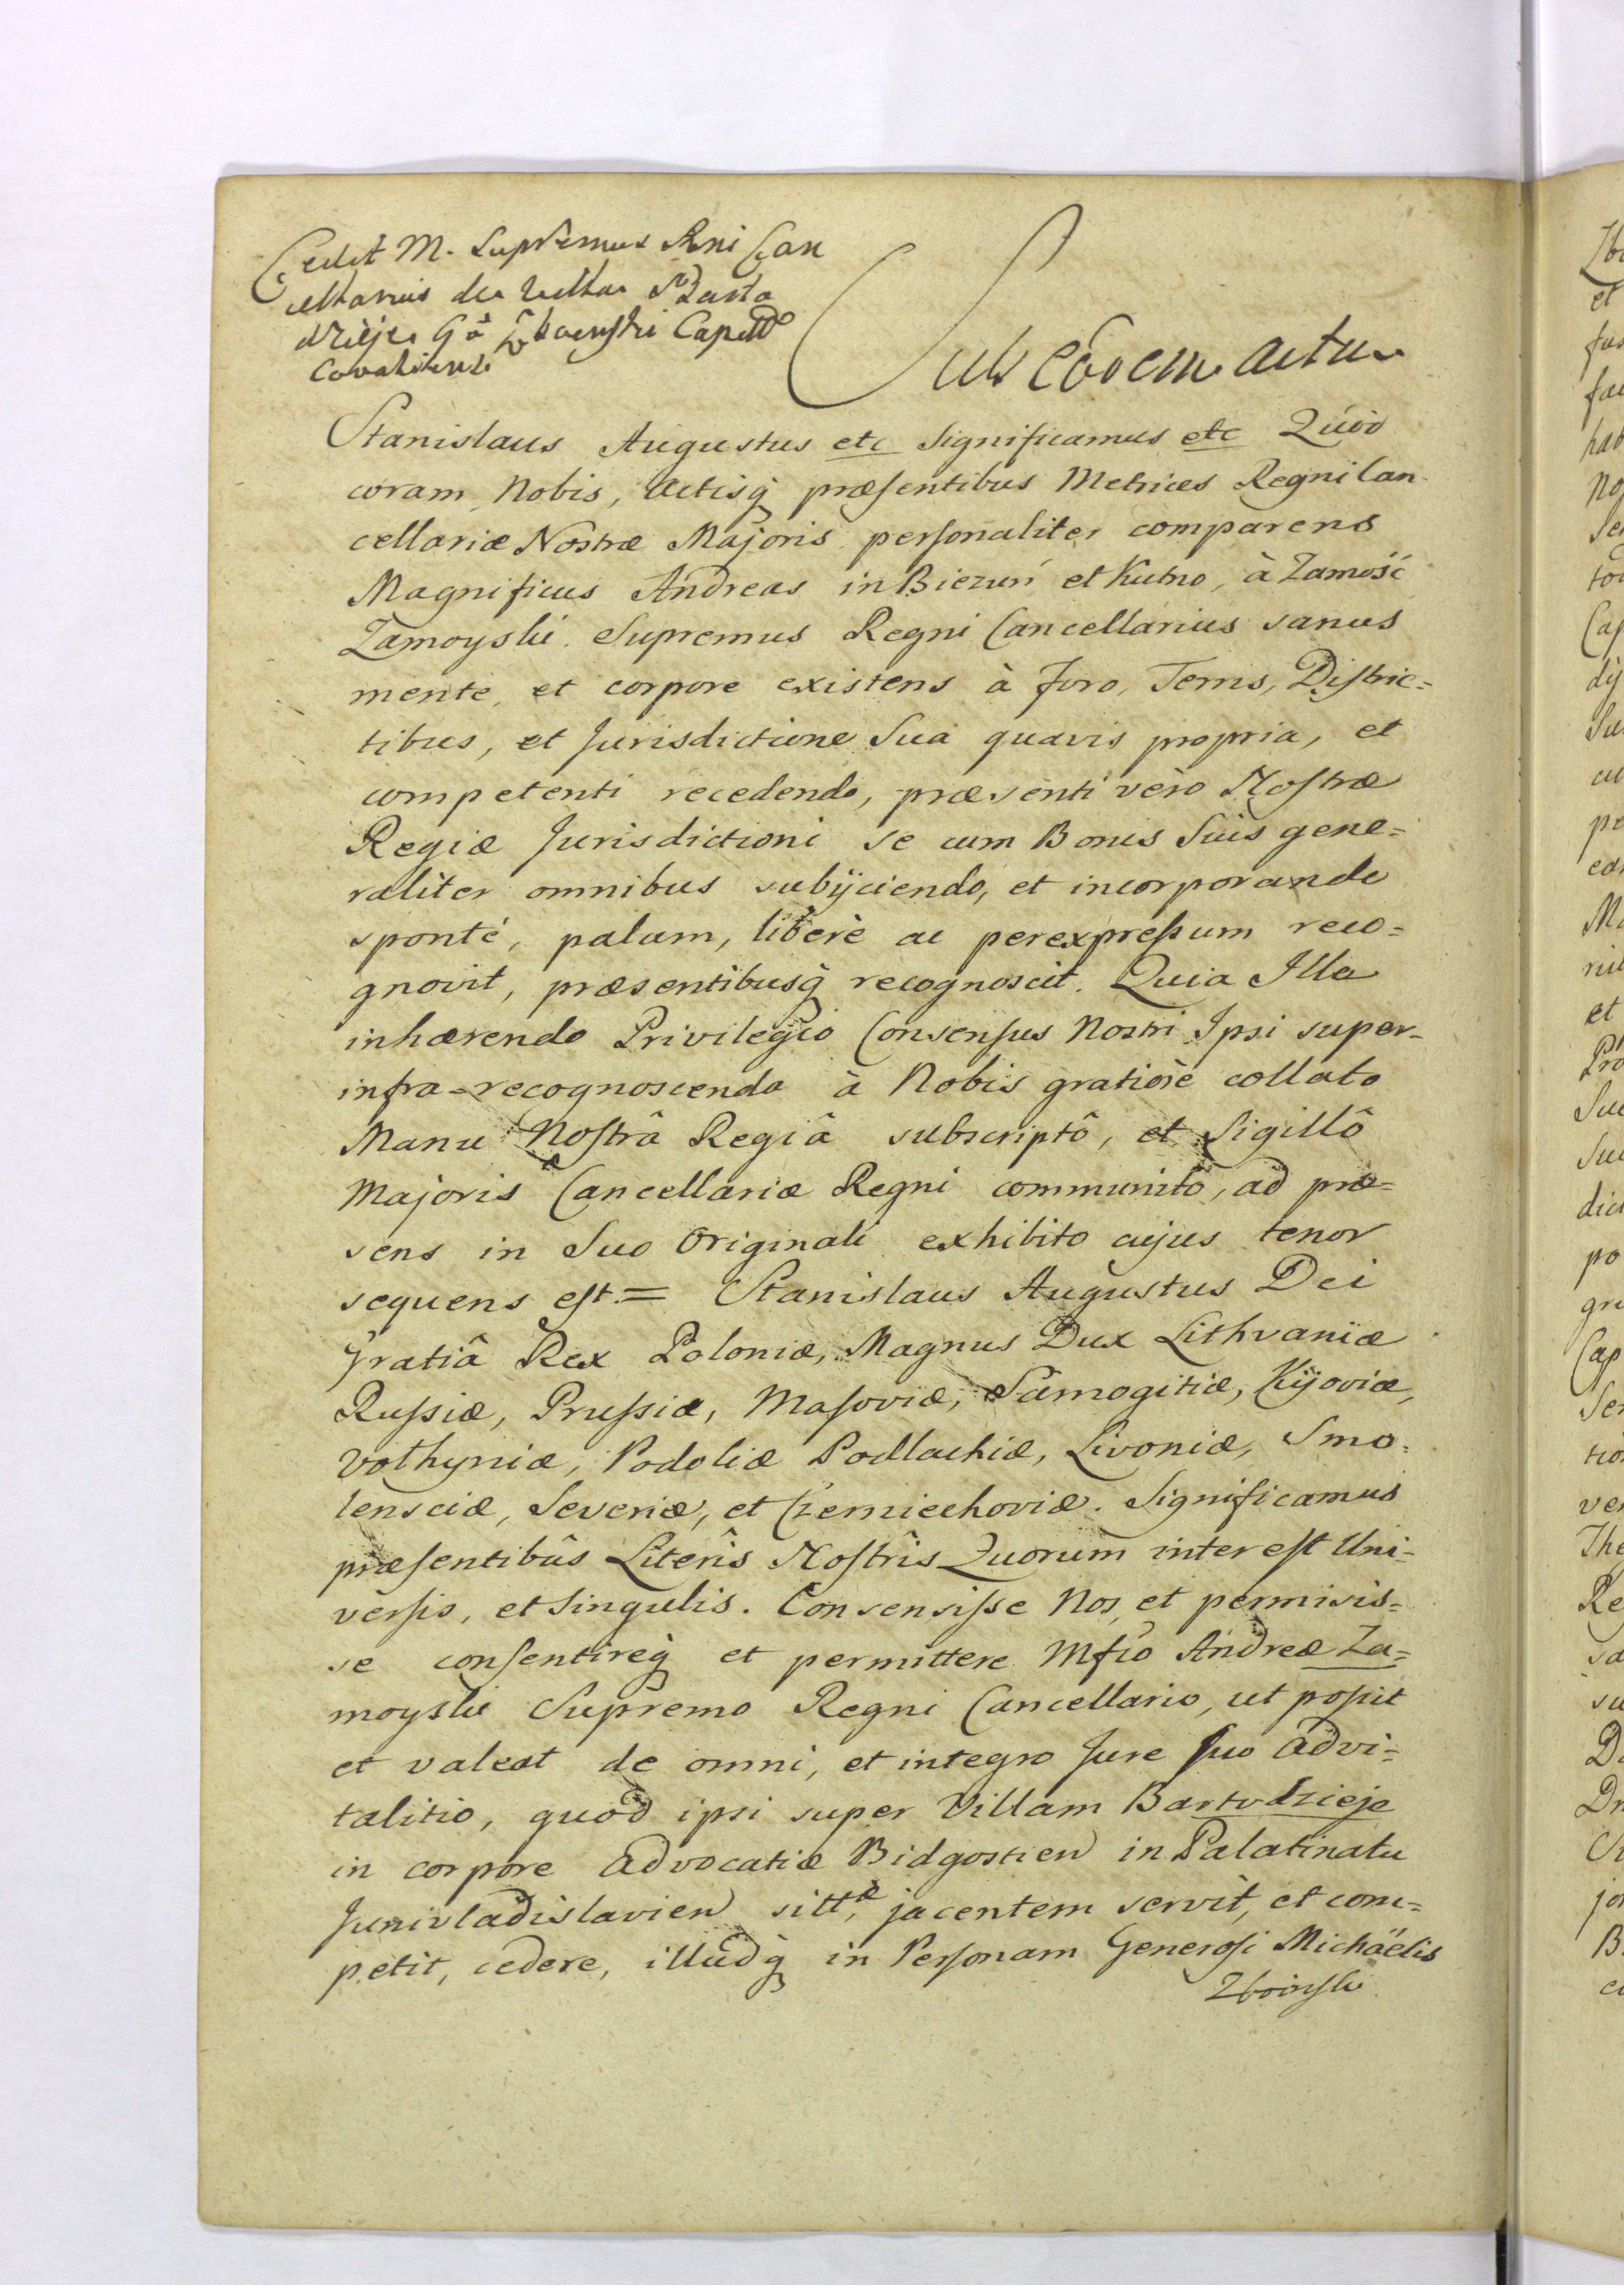 Cedit M. Supremus Rni Can
cellarius de villa Barto
dzieje Gō Zboinski Capitō
Covaliensi
Sub eodem actu
Stanislaus Augustus etc Significamus etc Quod
coram Nobis, Actisq́ præsentibus Metrices Regni Can-
cellariæ Nostræ Majoris personaliter comparens
Magnificus Andreas in Biezuń et Kutno, à Zamość
Zamoyski. Supremus Regni Cancellarius sanus
mente, et corpore existens à Foro, Terris, Distric=
tibus, et Jurisdictione Sua quavis propria, et
competenti recedendo, præsenti vèro Nostræ
Regiæ Jurisdictioni se cum Bonis Suis gene=
raliter omnibus subijciendo, et incorporando
sponté, palam, liberè ac perexpressum reco=
gnovit, præsentibusq́ recognoscit. Quia Ille
inhærendo Privilegio Consensus Nostri Ipsi super
infra-recognoscenda à Nobis gratiosè collato
Manu Nostrâ Regiâ subscriptô, et Sigillô
Majoris Cancellariæ Regni communitô, ad præ=
sens in Suo Originali exhibito cujus tenor
sequens est.= Stanislaus Augustus Dei
Gratiâ Rex Poloniæ, Magnus Dux Lithvaniæ
Russiæ, Prussiæ, Masoviæ, Samogitiæ, Kijoviæ,
Volhyniæ, Podoliæ Podlachiæ, Livoniæ, Smo=
lensciæ, Severiæ, et Czerniechoviæ. Significamus
præsentibûs Literîs Nostrîs Quorum interest Uni=
versis, et Singulis. Consensisse Nos, et permisis=
se consentireq́ et permittere Mfcō Andreæ Za=
moyski Supremo Regni Cancellario, ut possit
et valeat de omni, et integro Jure suo advi=
talitio, quod ipsi super Villam Bartodzieje
in corpore Advocatiæ Bidgostien in Palatinatu
Junivladislavien sittæ, jacentem servit, et com=
petit, cedere, illudq́ in Personam Generosi Michäelis
Zboinski